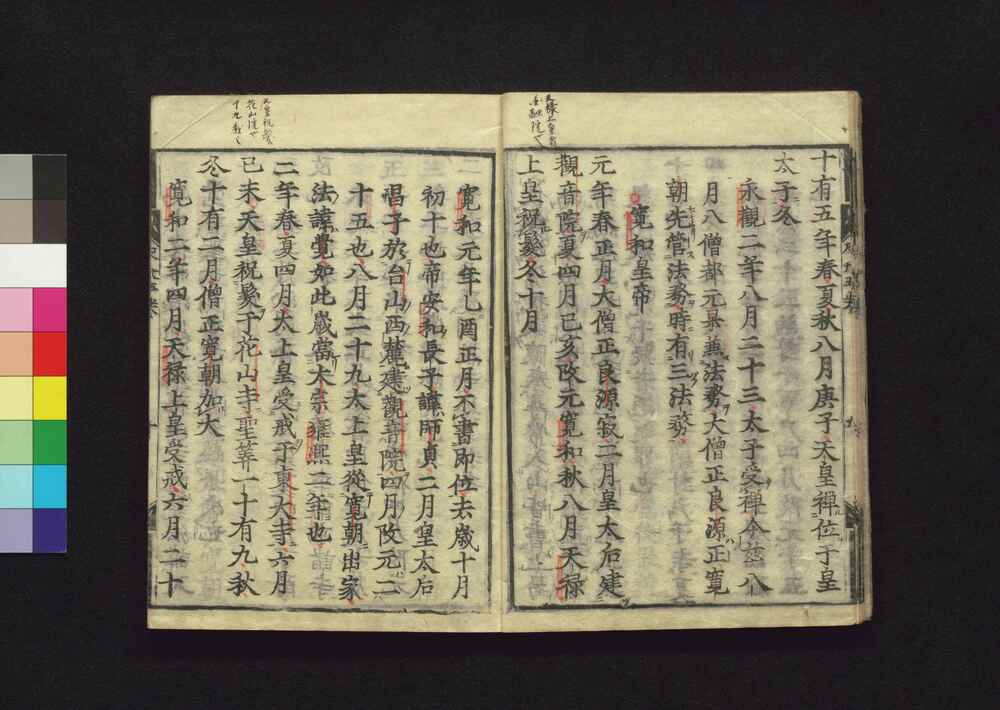 十有五年春夏秋八月庚子天皇禪位于皇
太子冬
永觀二年八月二十三太子受禪今玆八
月八僧都元杲兼法務大僧正良源正寬
朝先管法務時有三法務
寬和皇帝
元年春正月大僧正良源寂二月皇太后建
觀音院夏四月己亥改元寬和秋八月天祿
上皇祝髮冬十月
一寬和元年乙酉正月不書即位去歲十月
初十也帝安和長子諱師貞二月皇太后
昌子於台山西麓建觀音院四月改元二
十五也八月二十九太上皇從寬朝出家
法諱覺如此歲當大宗雍熙二年也
二年春夏四月太上皇受戒于東大寺六月
己未天皇祝髮于花山寺聖筭一十有九秋
冬十有二月僧正寬朝加大
寬和二年四月天祿上皇受戒六月二十